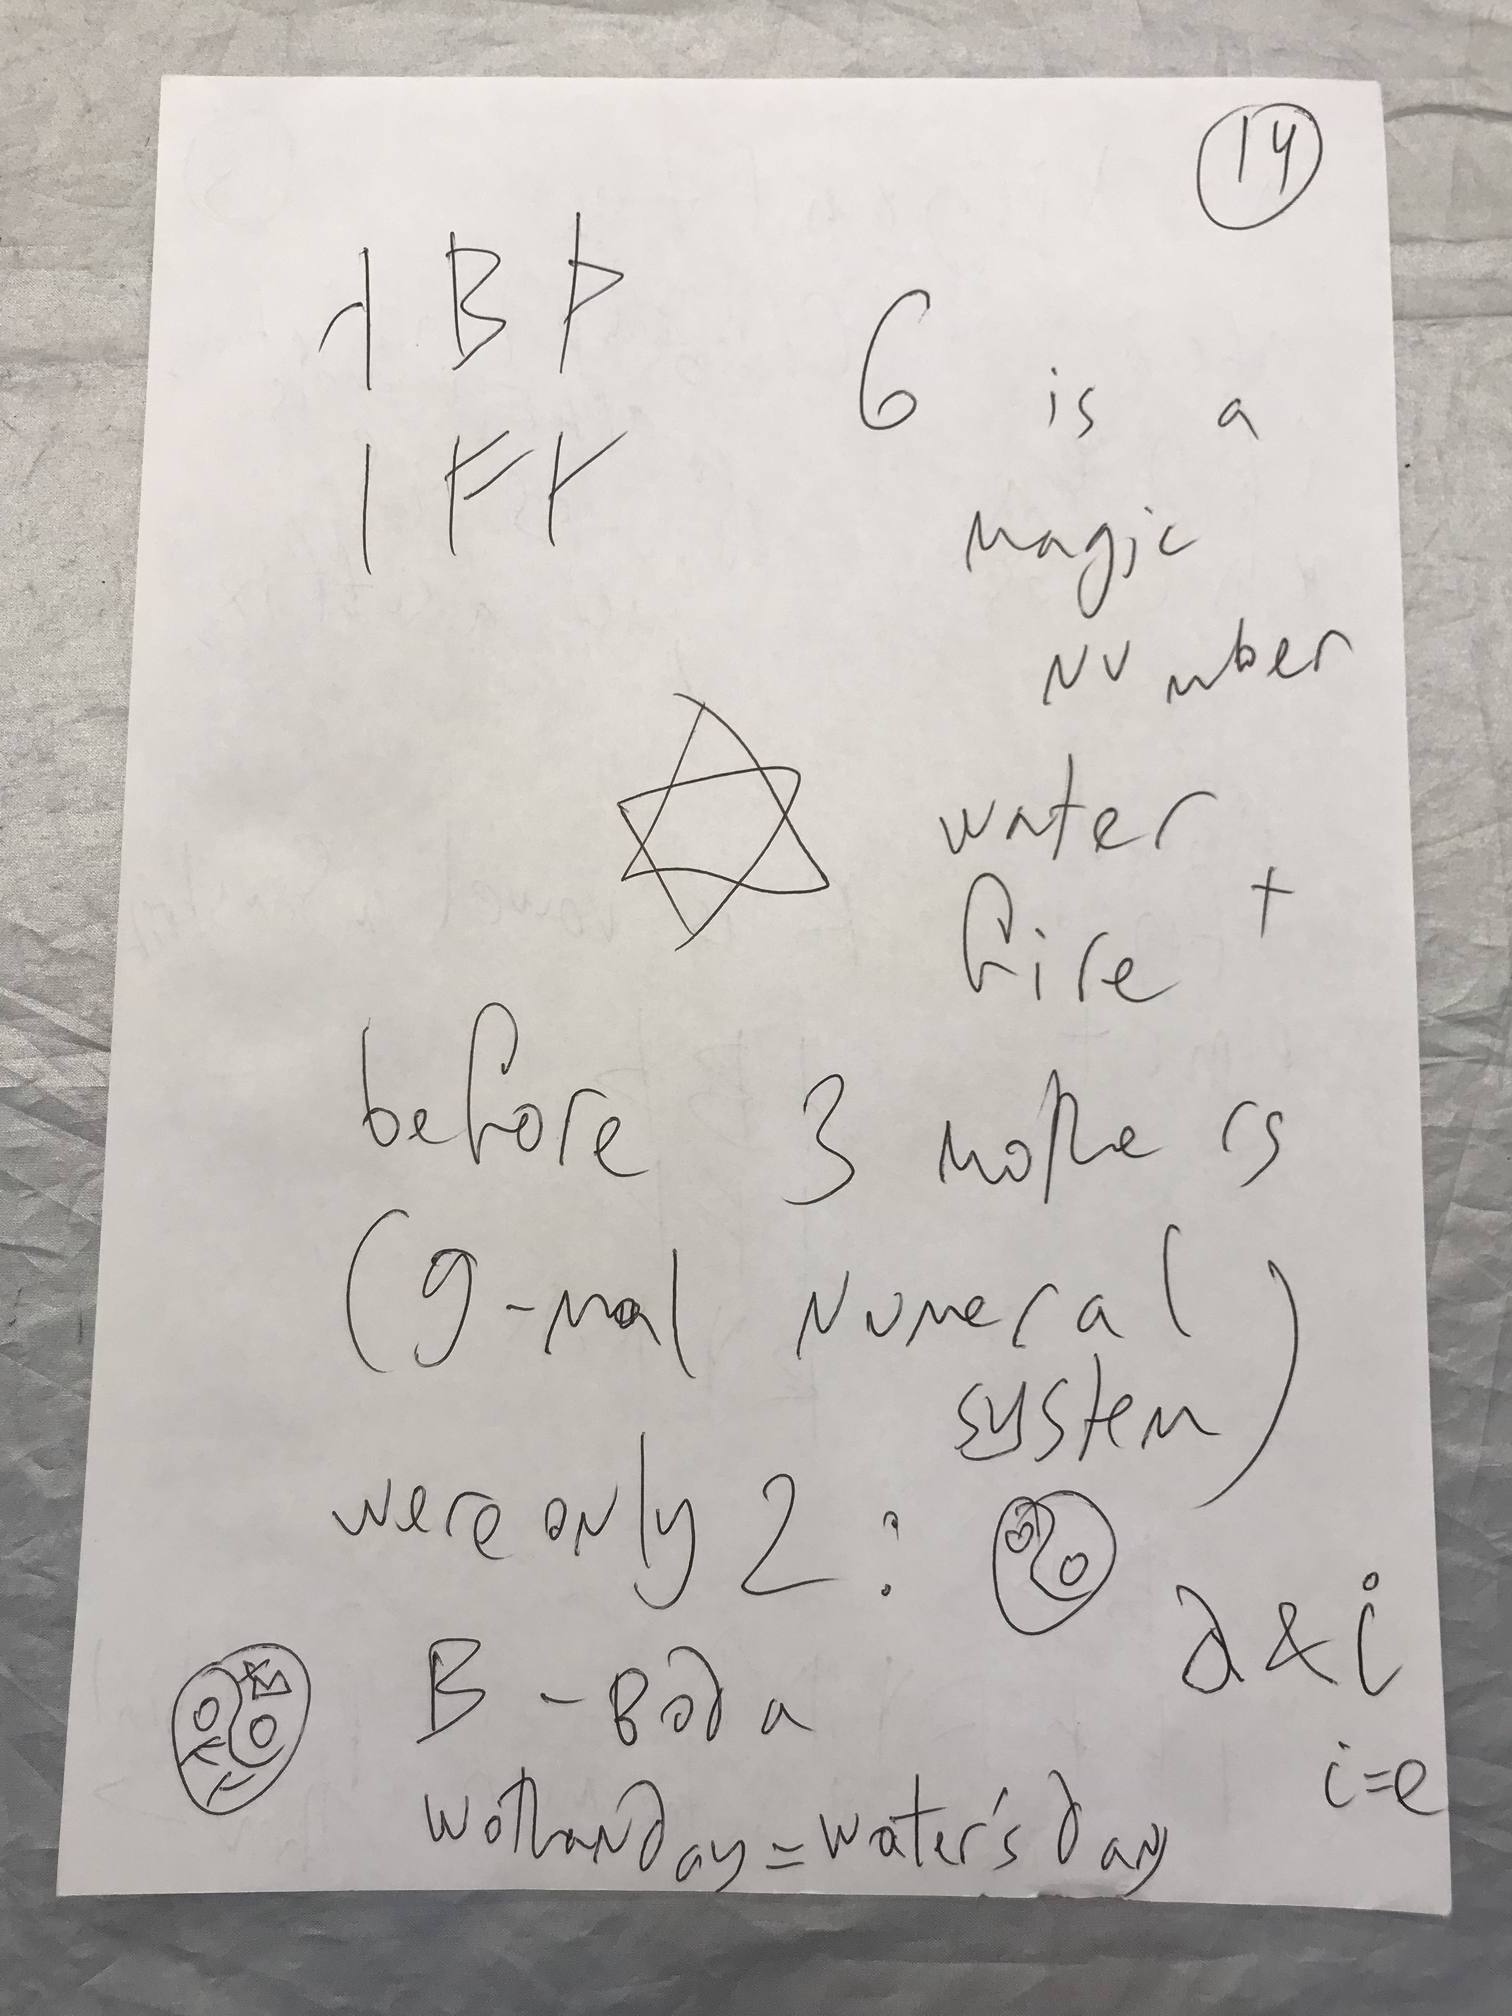 14
1 B Þ
6 is a
magic
number
water +
fire
before 3 mothers
(9-mal numeral
system)
were only 2:
a & i
i=e
B - Boda
Wothanday = water's day